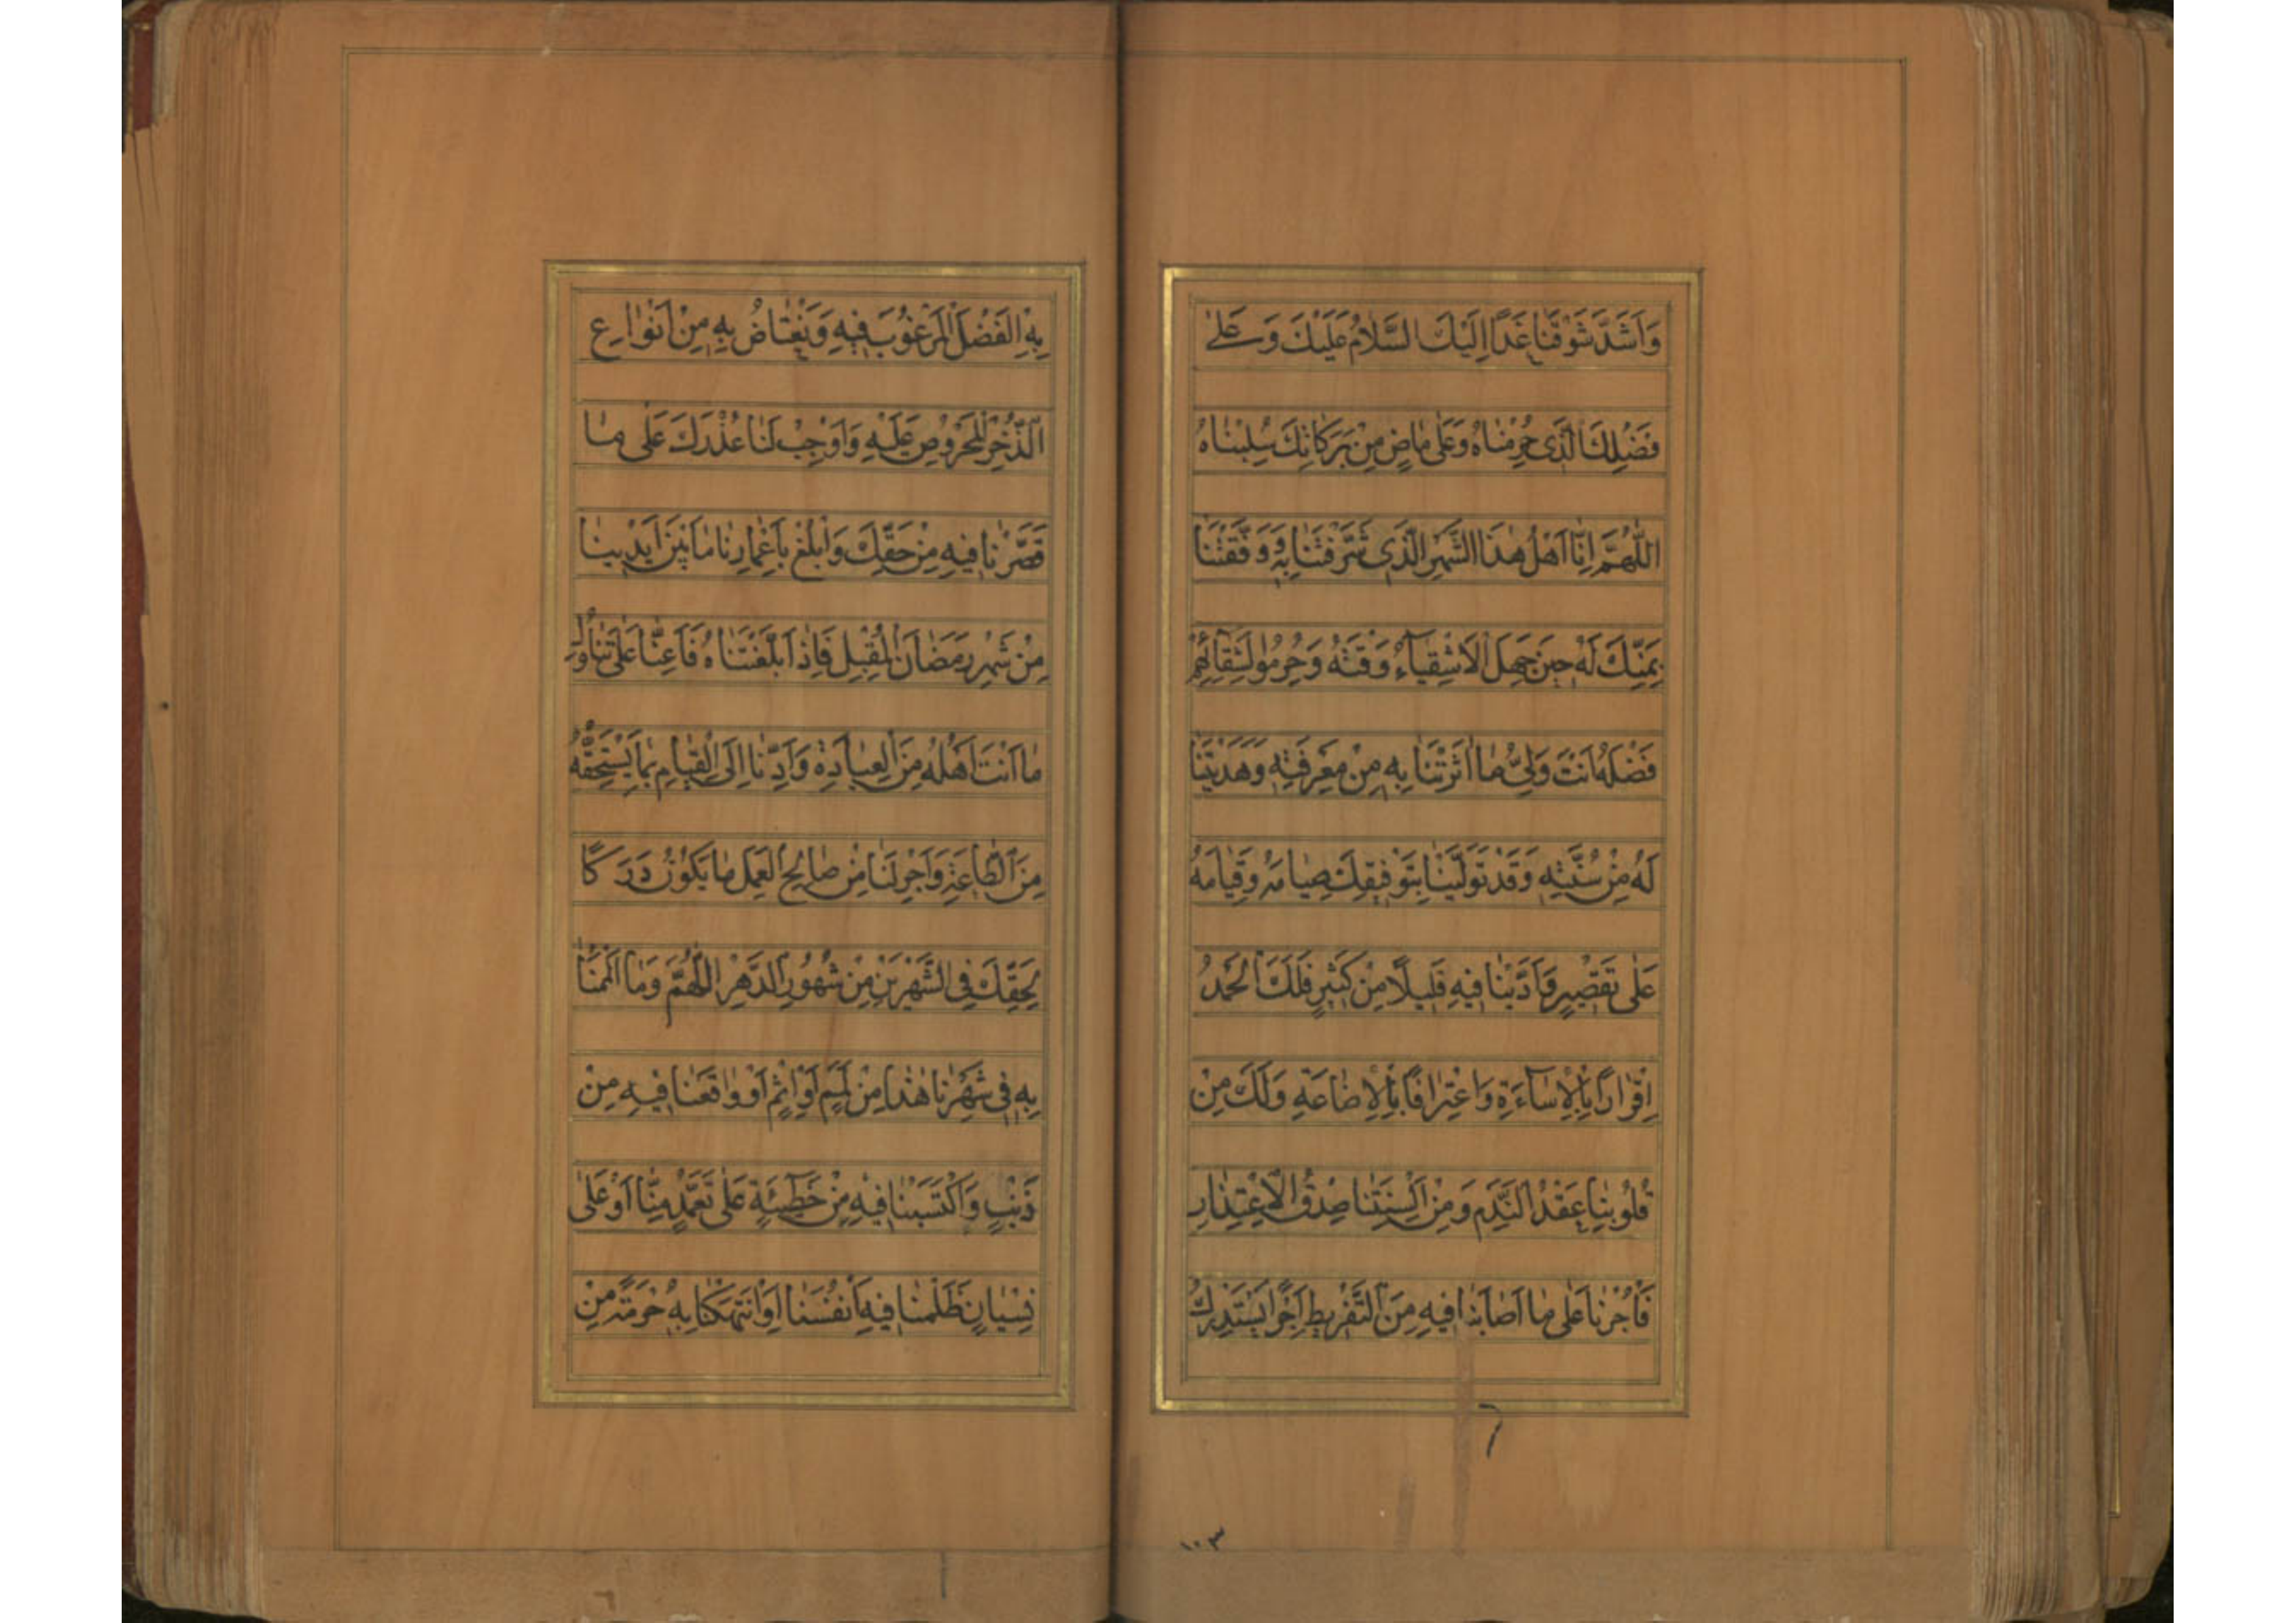 وَاَشَدَّ شَوْقَنَا غَدًا اِلَيْكَ السَّلَامُ عَلَيْكَ وَ عَلىٰ
فَضْلِكَ الَّذى حُرِمْنَاهُ وَعَلىٰ مَاضٍ مِنْ بَرَكَاتِكَ سُلِبْنَاهُ
اَللّٰهُمَّ اِنَّا اَهْلُ هٰذَا الشَّهْرِ الَّذى شَرَّفْتَنَا بِهِ وَوَفَّقْتَنَا
بِمَنِّكَ لَهُ حينَ جَهِلَ الْاَشْقِيَاءُ وَقْتَهُ وَحُرِمُوا لِشَقَائِهِمْ
فَضْلَهُ اَنْتَ وَلِىُّ مَا اٰثَرْتَنَا بِهِ مِنْ مَعْرِفَتِهِ وَهَدَيْتَنَا
لَهُ مِنْ سُنَّتِهِ وَقَدْ تَوَلَّيْنَا بِتَوْفيقِكَ صِيَامَهُ وَقِيَامَهُ
عَلىٰ تَقْصيرٍ وَاَدَّيْنَا فيهِ قَليلًا مِنْ كَثيرٍ فَلَكَ الْحَمْدُ
اِقْرَارًا بِالْاِسَاءَةِ وَاعْتِرَافًا بِالْاِضَاعَةِ وَلَكَ مِنْ
قُلُوبِنَا عَقْدُ النَّدَمِ وَمِنْ اَلْسِنَتِنَا صِدْقُ الْاِعْتِذَارِ
فَأْجُرْنَا عَلىٰ مَا اَصَابَنَا فيهِ مِنَ التَّفْريطِ اَجْرًا نَسْتَدْرِكُ
١٠٣
بِهِ الْفَضْلَ الْمَرْغُوبَ فيهِ وَنَعْتَاضُ بِهِ مِنْ اَنْوَاعِ
الذُّخْرِ الْمَحْرُوصِ عَلَيْهِ وَاَوْجِبْ لَنَا عُذْرَكَ عَلىٰ مَا
قَصَّرْنَا فيهِ مِنْ حَقِّكَ وَابْلُغْ بِاَعْمَارِنَا مَا بَيْنَ اَيْدينَا
مِنْ شَهْرِ رَمَضَانَ الْمُقْبِلِ فَاِذَا بَلَّغْتَنَاهُ فَاَعِنَّا عَلىٰ تَنَاوُلِ
مَا اَنْتَ اَهْلُهُ مِنَ الْعِبَادَةِ وَاَدِّنَا اِلَى الْقِيَامِ بِمَا يَسْتَحِقُّهُ
مِنَ الطَّاعَةِ وَاَجْرِ لَنَا مِنْ صَالِحِ الْعَمَلِ مَا يَكُونُ دَرَكًا
لِحَقِّكَ فِى الشَّهْرَيْنِ مِنْ شُهُورِ الدَّهْرِ اَللّٰهُمَّ وَمَا اَلْمَمْنَا
بِهِ فى شَهْرِنَا هٰذَا مِنْ لَمَمٍ اَوْ اِثْمٍ اَوْ وَاقَعْنَا فيهِ مِنْ
ذَنْبٍ وَاكْتَسَبْنَا فيهِ مِنْ خَطيئَةٍ عَلىٰ تَعَمُّدٍ مِنَّا اَوْ عَلىٰ
نِسْيَانٍ ظَلَمْنَا فيهِ اَنْفُسَنَا اَوِ انْتَهَكْنَا بِهِ حُرْمَةً مِنْ